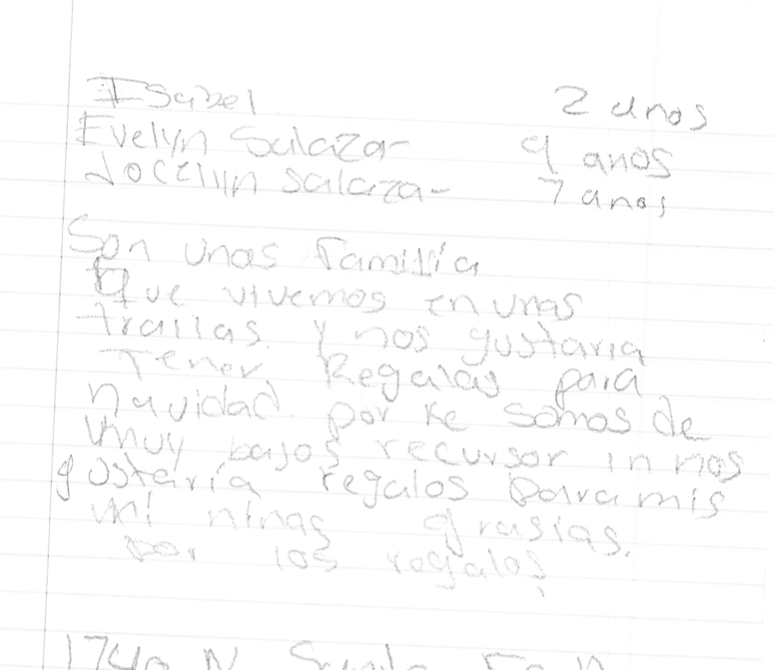 Isabel 2 anos
Evelyn Salazar 9 anos
Jocelyn Salazar 7 anos
Son unas Familia
Que vivemos en unas
trailas. y nos gustaria
Tener Regalas para
navidad. por ke somos de
muy bajos recursor in nos
gustaría regalos para mis
mi ninas grasias.
por los regalos
1740 N.